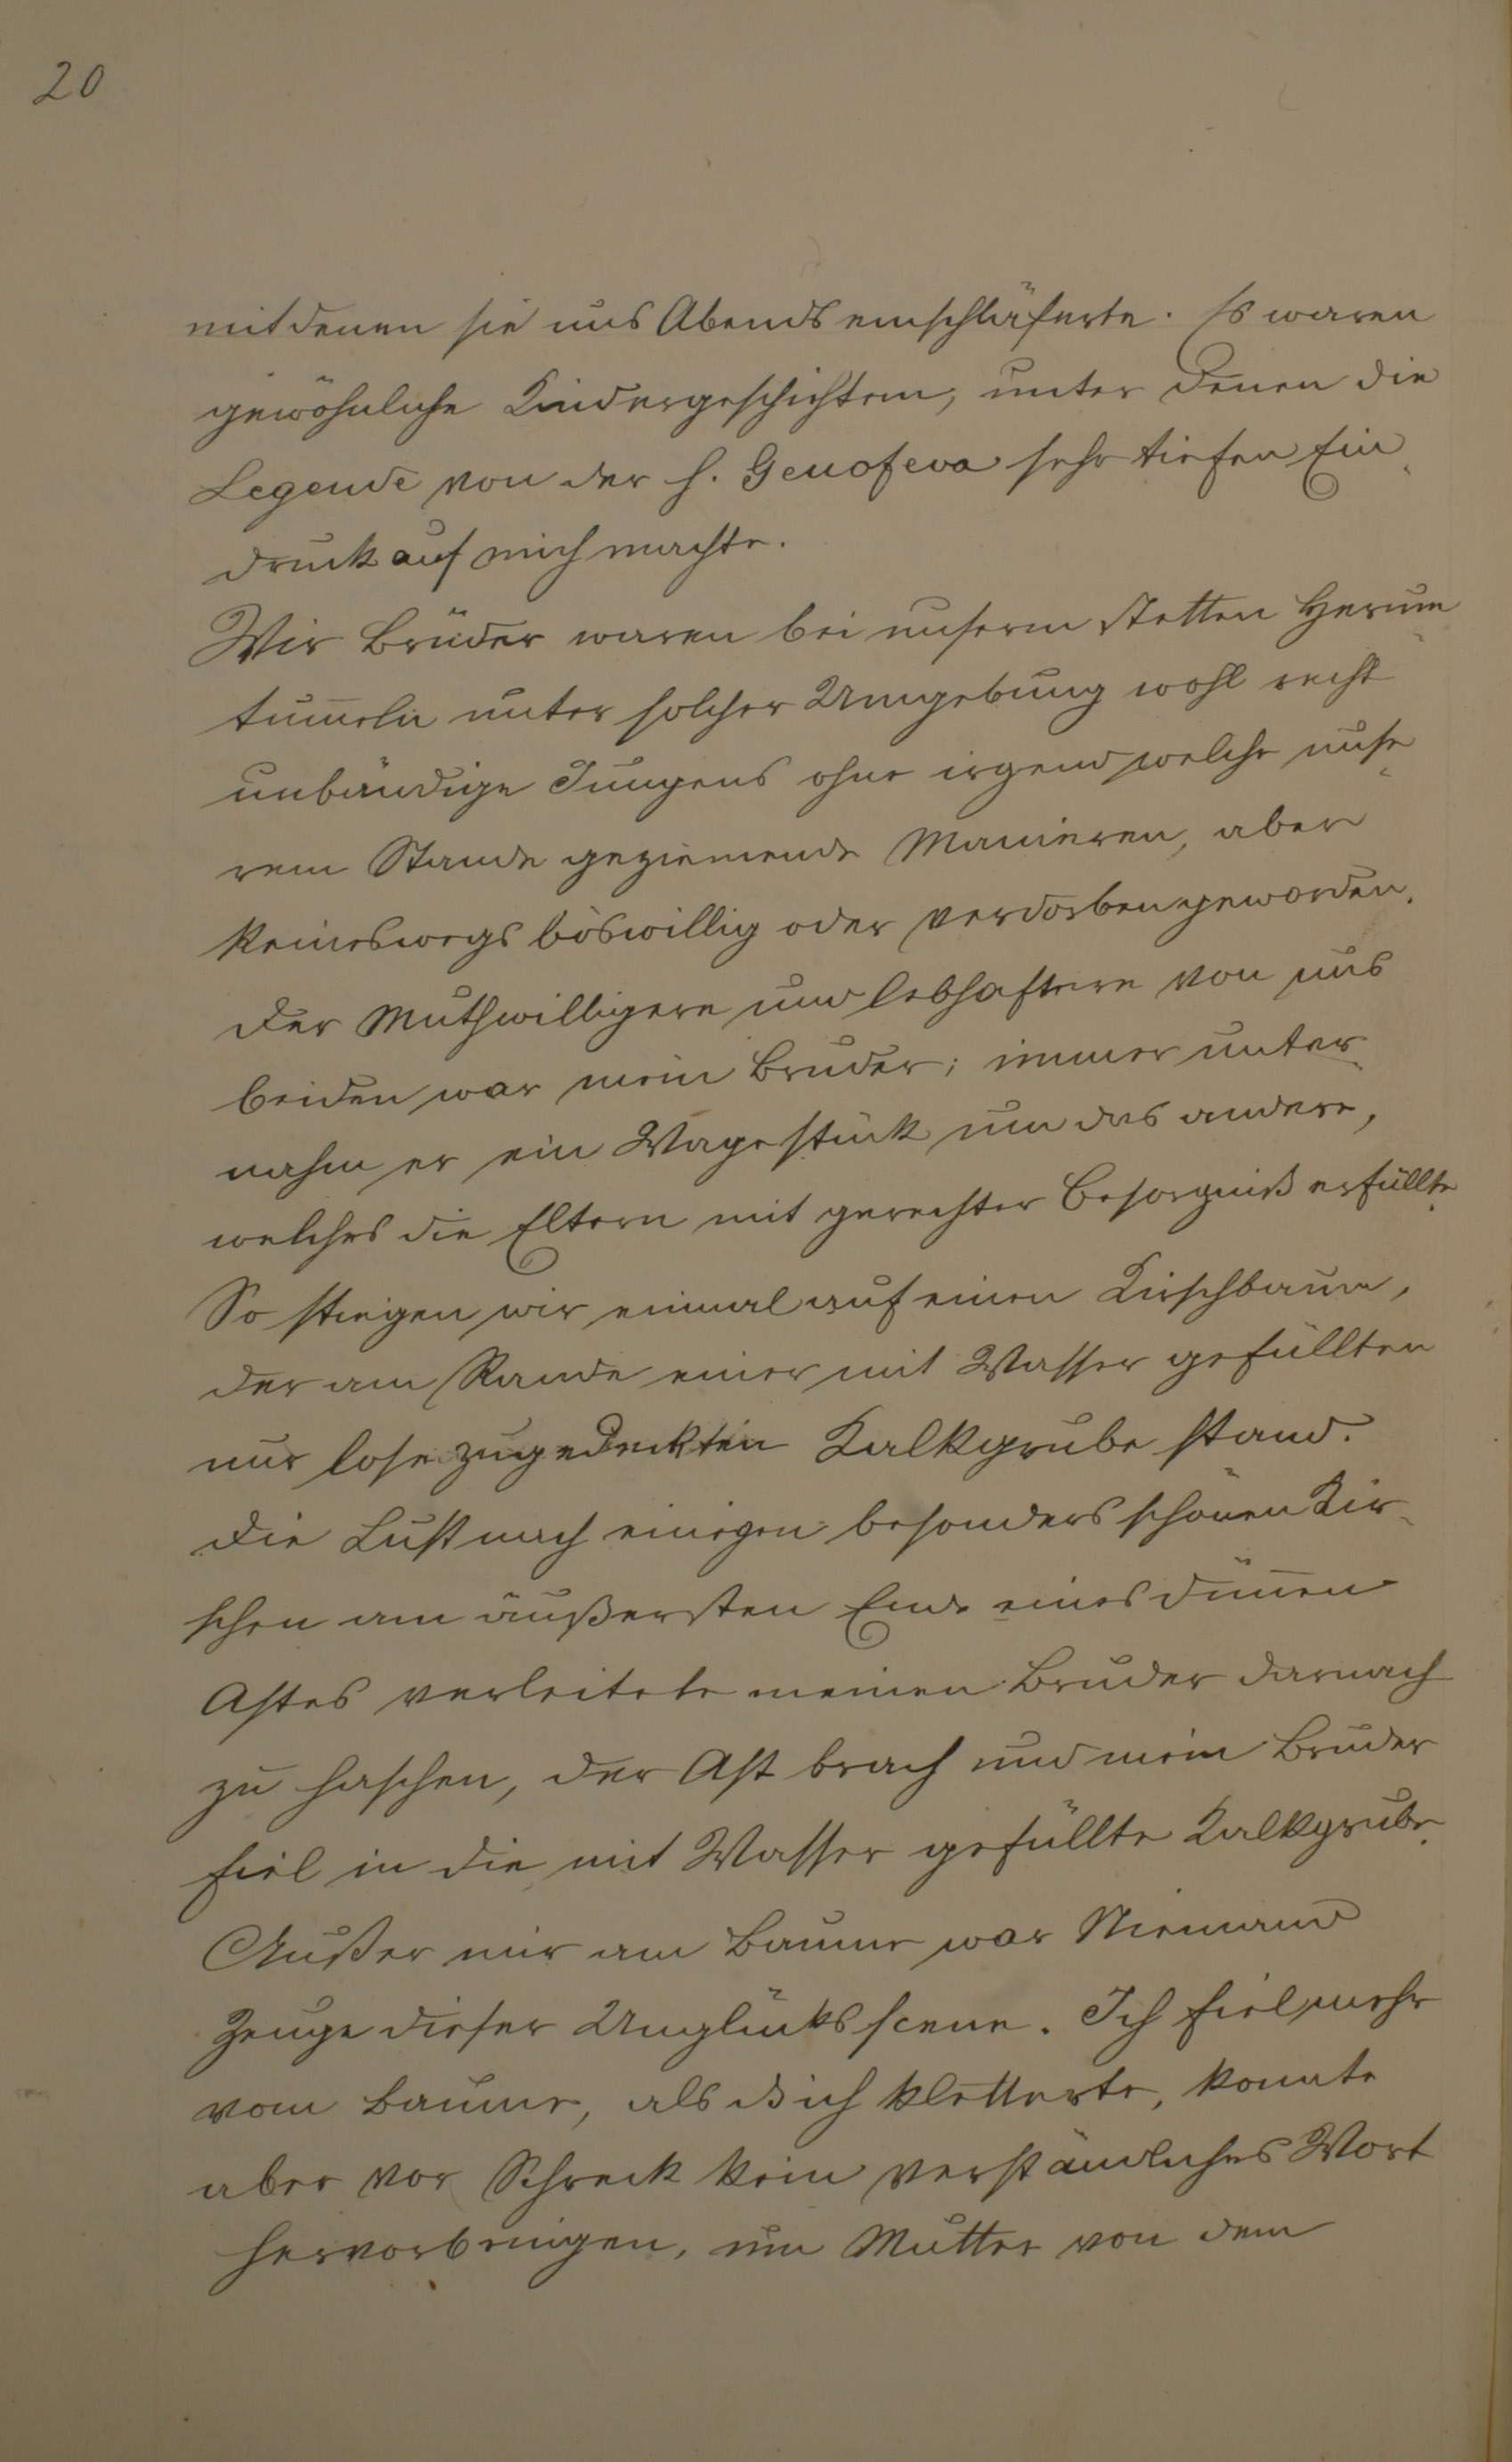 20
mit denen sie uns Abends einschläferte. Es waren
gewöhnliche Kindergeschichten, unter denen die
Legende von der h. Genofeva sehr tiefen Ein-
druck auf mich machte.
Wir Brüder waren bei unserm stetten Herum-
tum̄eln unter solcher Umgebung wohl recht
unbändige Jungens ohne irgend welche unse-
rem Stande geziemende Manieren, aber
keineswegs böswillig oder verdorben geworden.
Der Muthwilligere und lebhaftere von uns
beiden war mein Bruder; immer unter-
nahm er ein Wagestück um das andere,
welches die Eltern mit gerechter Besorgniß erfüllte.
So stiegen wir einmal auf einen Kirschbaum,
der am Rande einer mit Wasser gefüllten
nur lose zugedeckten Kalkgrube stand.
Die Lust nach einigen besonders schönen Kir-
schen am äußersten Ende eines dün̄en
Astes verleitete meinen Bruder darnach
zu haschen, der Ast brach und mein Bruder
fiel in die mit Wasser gefüllte Kalkgrube.
Außer mir am Baume war Niemand
Zeuge dieser Unglücksscene. Ich fiel mehr
vom Baume, als daß ich kletterte, konnte
aber vor Schreck kein verständliches Wort
hervorbringen, um Mutter von dem